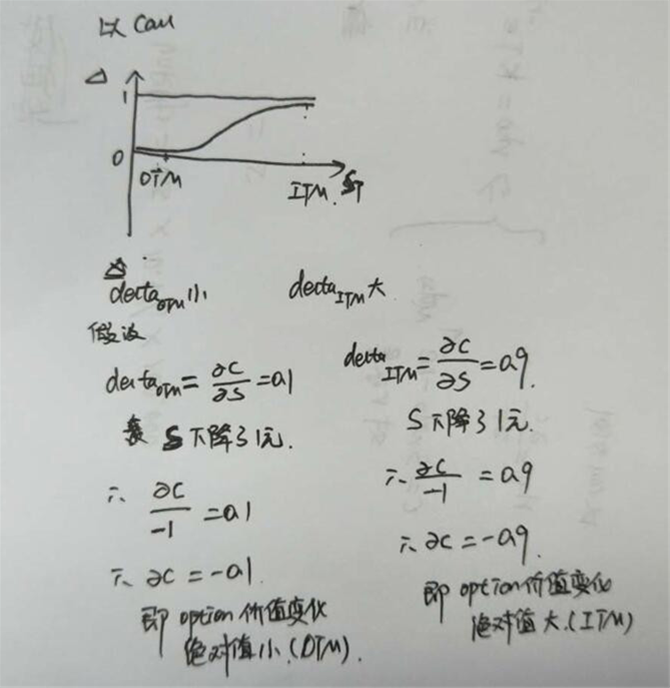 以 Call
Δ
1
0
OTM
ITM. ST
Δ
delta OTM 小
delta ITM 大
假设
delta OTM = ∂C/∂S = 0.1
S 下降了1元.
∴ ∂C/-1 = 0.1
∴ ∂C = -0.1.
即 option 价值变化
绝对值小.(OTM).
delta ITM = ∂C/∂S = 0.9.
S 下降了1元.
∴ ∂C/-1 = 0.9
∴ ∂C = -0.9.
即 option 价值变化
绝对值大.(ITM)